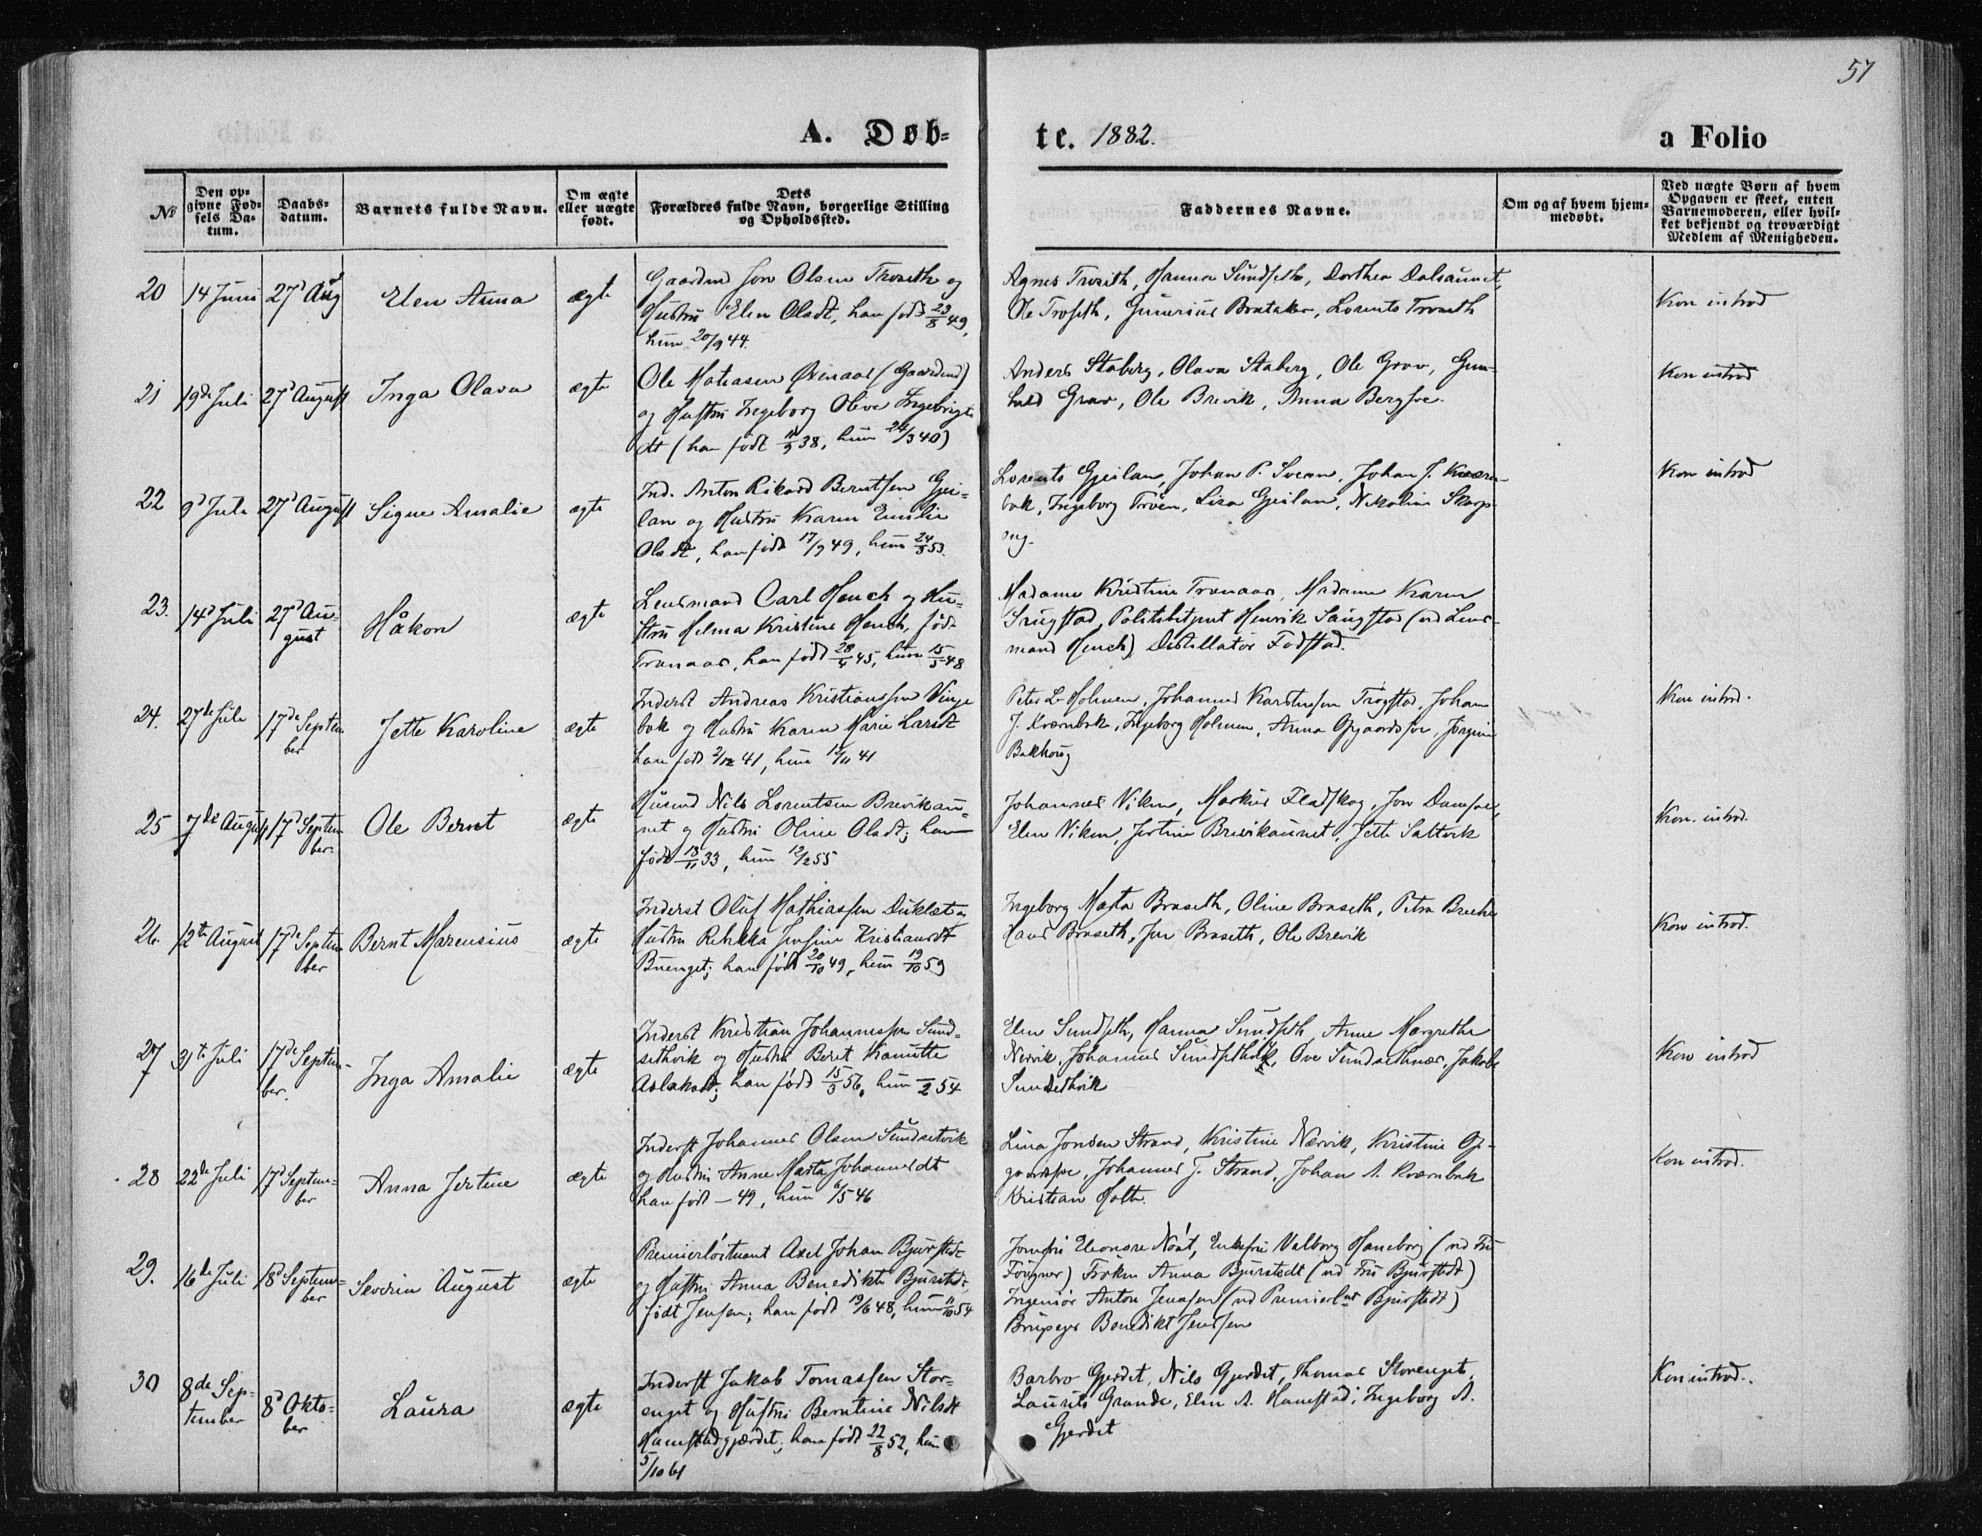 57
A. Døb-
te. 1882.
a Folio
№
Den op-
givne Fød-
sels Da-
tum.
Daabs-
datum.
Barnets fulde Navn.
Om ægte
eller uægte
født.
Dets
Forældres fulde Navn, borgerlige Stilling
og Opholdssted.
Faddernes Navne.
Om og af hvem hjem-
medøbt.
Ved uægte Børn af hvem
Opgaven er skeet, enten
Barnemoderen, eller hvil-
ket bekjendt og troværdigt
Medlem af Menigheden.
20
14 Juni
27d Aug
Elen Anna
ægte
Gaardm Jon Olsen Troseth og
Hustru Elen Olsdt, han født 23/8 49,
hun 20/9 44.
Agnes Troseth, Hanna Sundseth, Dorthea Dalsaunet,
Ole Troseth, Gunerius Brataker, Lorents Troseth
Kon introd
21
19de Juli
27d August
Inga Olava
ægte
Ole Matiasen Øxenaas (Gaardmd)
og Hustru Ingeborg Olava Ingebrigts
dt (han født 11/9 38, hun 24/3 40)
Anders Staberg, Olava Staberg, Ole Grav, Gun-
hild Grav, Ole Brevik, Anna Bergsve.
Kon introd
22
9d Juli
27d August
Signe Amalie
ægte
Ind. Anton Rikard Berntsen Gei-
lan og Hustru Karen Emilie
Olsdt, han født 17/9 49, hun 24/3 53.
Lorents Geilan, Johan P. Sveen, Johan J. Kværn-
bak, Ingeborg Trøen, Lisa Geilan, Nikoline Skarp
ng.
Kon introd
23.
14d Juli
27d Au-
gust
Håkon
ægte
Lensmand Carl Hench og Hu-
stru Helma Kristine Hench, født
Tranaas, han født 28/4 45, hun 15/5 48
Madame Kristine Tranaas, Madame Karen
Saugstad, Politibetjent Henrik Saugstad (ved Lens-
mand Hench) Distillatør Fodstad.
24.
27de Juli
17de Septem
ber
Jette Karoline
ægte
Inderst Andreas Kristianssen Vinge
bak og Hustru Karen Marie Larsdt
han født 2/12 41, hun 12/11 41
Peter L. Holmen, Johannes Karstensen Trøgstad, Johan
J. Kværnbak, Ingeborg Holmen, Anna Opgaardsve, Jørgine
Bakhaug
Kon introd.
25
7de August
17d Septem
ber.
Ole Bernt
ægte
Husmd Nils Lorentsen Brevikau-
net og Hustru Oline Olsdt; han
født 13/11 33, hun 12/2 55
Johannes Viken, Markus Fladskog, Jon Damsve,
Elen Viken, Jertine Brevikaunet, Jette Saltvik
Kon. introd.
26.
12te August
17de Septem
ber
Bernt Marensius
ægte
Inderst Oluf Mathiassen Duklæt og
Hustru Rebekka Josefine Kristiansdt
Buenget; han født 20/10 49, hun 19/10 59
Ingeborg Marta Braseth, Oline Braseth, Petra Brevik
Hans Braseth, Jon Braseth, Ole Brevik
Kon introd.
27
31te Juli
17de Septem-
ber.
Inga Amalie
ægte
Inderst Kristian Johannessen Sund-
sethvik og Hustru Beret Kanutte
Aslaksdt; han født 15/3 56, hun —/2 54
Elen Sundseth, Hanna Sundseth, Anne Margrethe
Nervik, Johannes Sundsethvik, Ove Sundsethnæs, Jakob
Sundsethvik
Kon introd
28
22de Juli
17d Septem-
ber
Anna Jertine
ægte
Inderst Johannes Olsen Sundsetvik
og Hustru Anne Marta Johannesdt
han født — 49, hun 6/5 46
Lina Jonsen Strand, Kristine Nervik, Kristine Op-
gaardsve, Johannes J. Strand, Johan A. Kværnbak
Kristian Holte.
Kon introd.
29.
16de Juli
18d Septem-
ber
Severin August
ægte
Premierløitnant Axel Johan Bjurstedt
og Hustru Anna Benedikte Bjurstedt
født Jensen; han født 19/6 48, hun 11/10 54
Jomfru Eleonore Noát, Enkefru Valborg Haneborg (ved Fru
Fougner) Frøken Anna Bjurstedt (ved Fru Bjurstedt)
Ingeniør Anton Jenssen (ved Premierlnt Bjurstedt)
Brugseyer Benedikt Jenssen
30
8de Sep-
tember
8d Okto-
ber
Laura
ægte
Inderst Jakob Tomassen Stor-
enget og Hustru Berntine Nilsdt
Hamstadgjærdet; han født 22/8 52, hun
5/10 61
Barbro Gjerdet, Nils Gjerdet, Thomas Storenget,
Laurits Grande, Elen A. Hamstad, Ingeborg A.
Gjerdet
Kon introd.